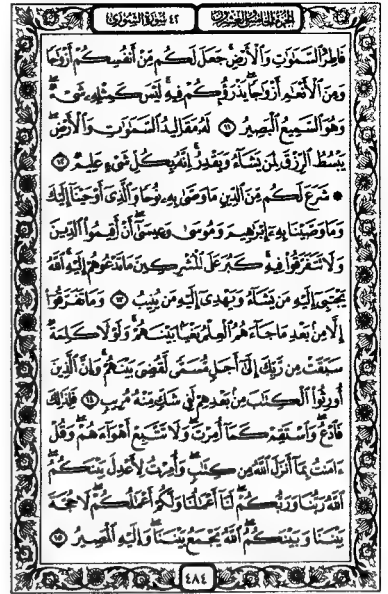 الجزء الخامس والعشرون
٤٢ سورة الشورى
فَاطِرُ السَّمَٰوَٰتِ وَالْأَرْضِ ۚ جَعَلَ لَكُم مِّنْ أَنفُسِكُمْ أَزْوَٰجًا
وَمِنَ الْأَنْعَٰمِ أَزْوَٰجًا ۖ يَذْرَؤُكُمْ فِيهِ ۚ لَيْسَ كَمِثْلِهِۦ شَىْءٌ ۖ
وَهُوَ السَّمِيعُ الْبَصِيرُ ١١ لَهُۥ مَقَالِيدُ السَّمَٰوَٰتِ وَالْأَرْضِ ۖ
يَبْسُطُ الرِّزْقَ لِمَن يَشَآءُ وَيَقْدِرُ ۚ إِنَّهُۥ بِكُلِّ شَىْءٍ عَلِيمٌ ١٢
۞ شَرَعَ لَكُم مِّنَ الدِّينِ مَا وَصَّىٰ بِهِۦ نُوحًا وَالَّذِىٓ أَوْحَيْنَآ إِلَيْكَ
وَمَا وَصَّيْنَا بِهِۦٓ إِبْرَٰهِيمَ وَمُوسَىٰ وَعِيسَىٰٓ ۖ أَنْ أَقِيمُوا الدِّينَ
وَلَا تَتَفَرَّقُوا فِيهِ ۚ كَبُرَ عَلَى الْمُشْرِكِينَ مَا تَدْعُوهُمْ إِلَيْهِ ۚ اللَّهُ
يَجْتَبِىٓ إِلَيْهِ مَن يَشَآءُ وَيَهْدِىٓ إِلَيْهِ مَن يُنِيبُ ١٣ وَمَا تَفَرَّقُوٓا
إِلَّا مِنۢ بَعْدِ مَا جَآءَهُمُ الْعِلْمُ بَغْيًۢا بَيْنَهُمْ ۚ وَلَوْلَا كَلِمَةٌ
سَبَقَتْ مِن رَّبِّكَ إِلَىٰٓ أَجَلٍ مُّسَمًّى لَّقُضِىَ بَيْنَهُمْ ۚ وَإِنَّ الَّذِينَ
أُورِثُوا الْكِتَٰبَ مِنۢ بَعْدِهِمْ لَفِى شَكٍّ مِّنْهُ مُرِيبٍ ١٤ فَلِذَٰلِكَ
فَادْعُ ۖ وَاسْتَقِمْ كَمَآ أُمِرْتَ ۖ وَلَا تَتَّبِعْ أَهْوَآءَهُمْ ۖ وَقُلْ
ءَامَنتُ بِمَآ أَنزَلَ اللَّهُ مِن كِتَٰبٍ ۖ وَأُمِرْتُ لِأَعْدِلَ بَيْنَكُمُ ۖ
اللَّهُ رَبُّنَا وَرَبُّكُمْ ۖ لَنَآ أَعْمَٰلُنَا وَلَكُمْ أَعْمَٰلُكُمْ ۖ لَا حُجَّةَ
بَيْنَنَا وَبَيْنَكُمُ ۖ اللَّهُ يَجْمَعُ بَيْنَنَا ۖ وَإِلَيْهِ الْمَصِيرُ ١٥
٤٨٤